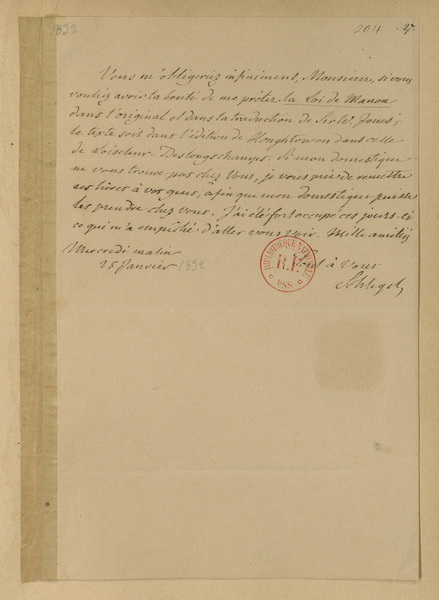 1832
204 27.
Vous m'obligeriez infiniment, Monsieur, si vous
vouliez avoir la bonté de me prêter la Loi de Manou
dans l'original et dans la traduction de Sir W. Jones;
le texte soit dans l'édition de Houghton ou dans celle
de Loiseleur Deslongchamps. Si mon domestique
ne vous trouve pas chez Vous, je vous prie de remettre
ces livres à vos gens, afin que mon domestique puisse
les prendre chez Vous. J'ai été fort occupé ces jours-ci
ce qui m'a empêché d'aller vous voir. Mille amitiés
Mercredi matin
25 Janvier 1832
Tout à Vous
Schlegel
BIBLIOTHÈQUE NATIONALE
R.F.
MSS